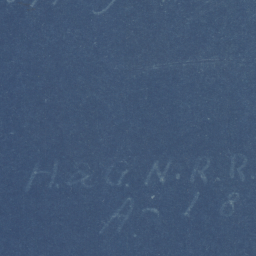 H. & G. N. R. R.
A - 18